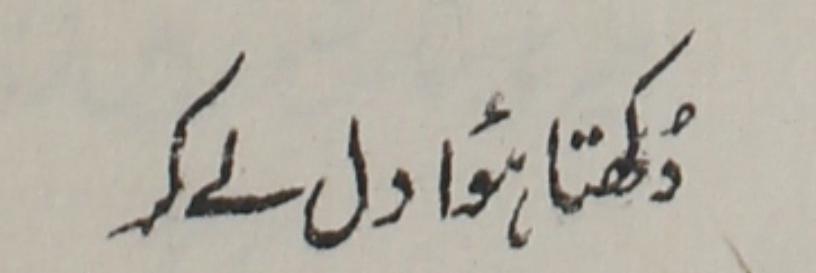 دُکھتا ہؤا دل لے کر